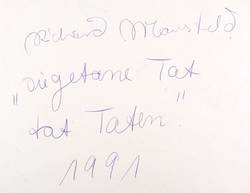 Richard Mansfeld.
„Die getane Tat
tat Taten."
1991